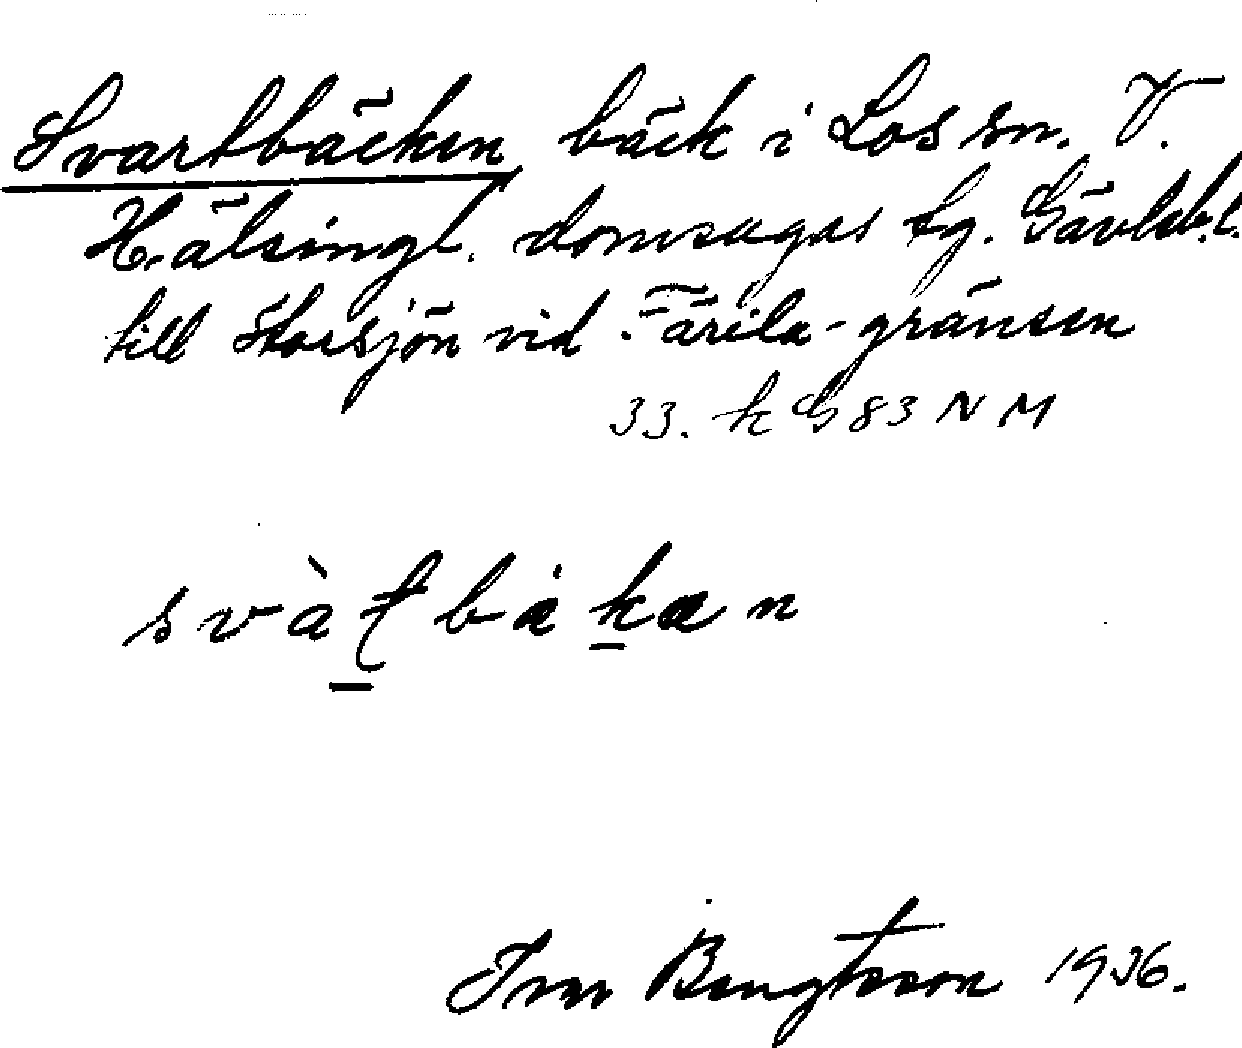 Svartbäcken bäck i Los sn. V.
Hälsingl. domsagas tg. Gävleb.l.
till Storsjön vid Färila-gränsen
33. k G 83 N M
svàƭbakan
Ivar Bengtsson 1936.